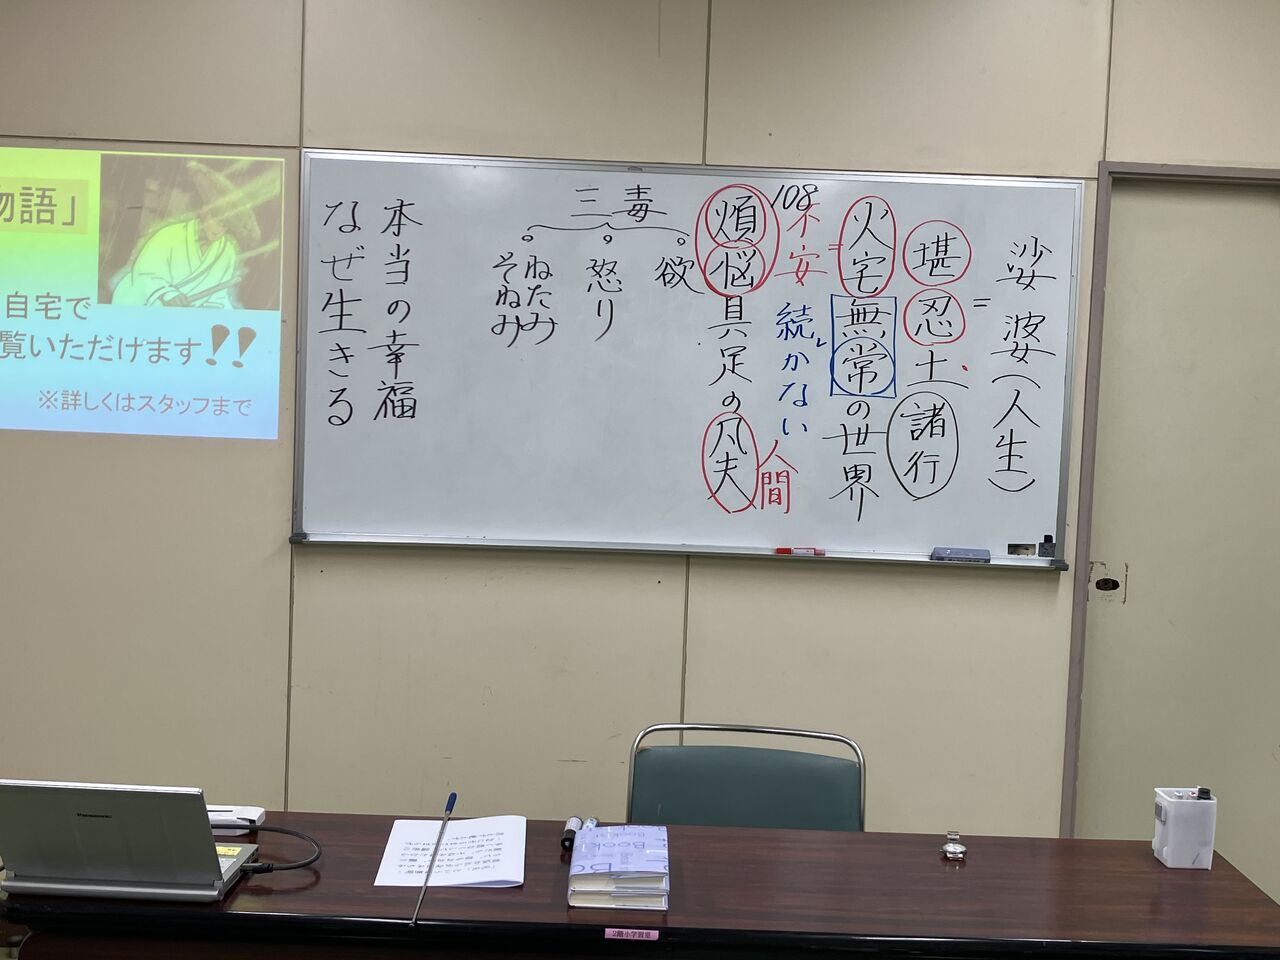 娑婆(人生)
=
堪忍土
諸行
火宅無常の世界
=
不安
続かない
人間
108
煩悩具足の凡夫
三毒
欲
怒り
ねたみ
そねみ
本当の幸福
なぜ生きる
物語」
自宅で
覧いただけます!!
※詳しくはスタッフまで
Panasonic
Book
2階小学習室